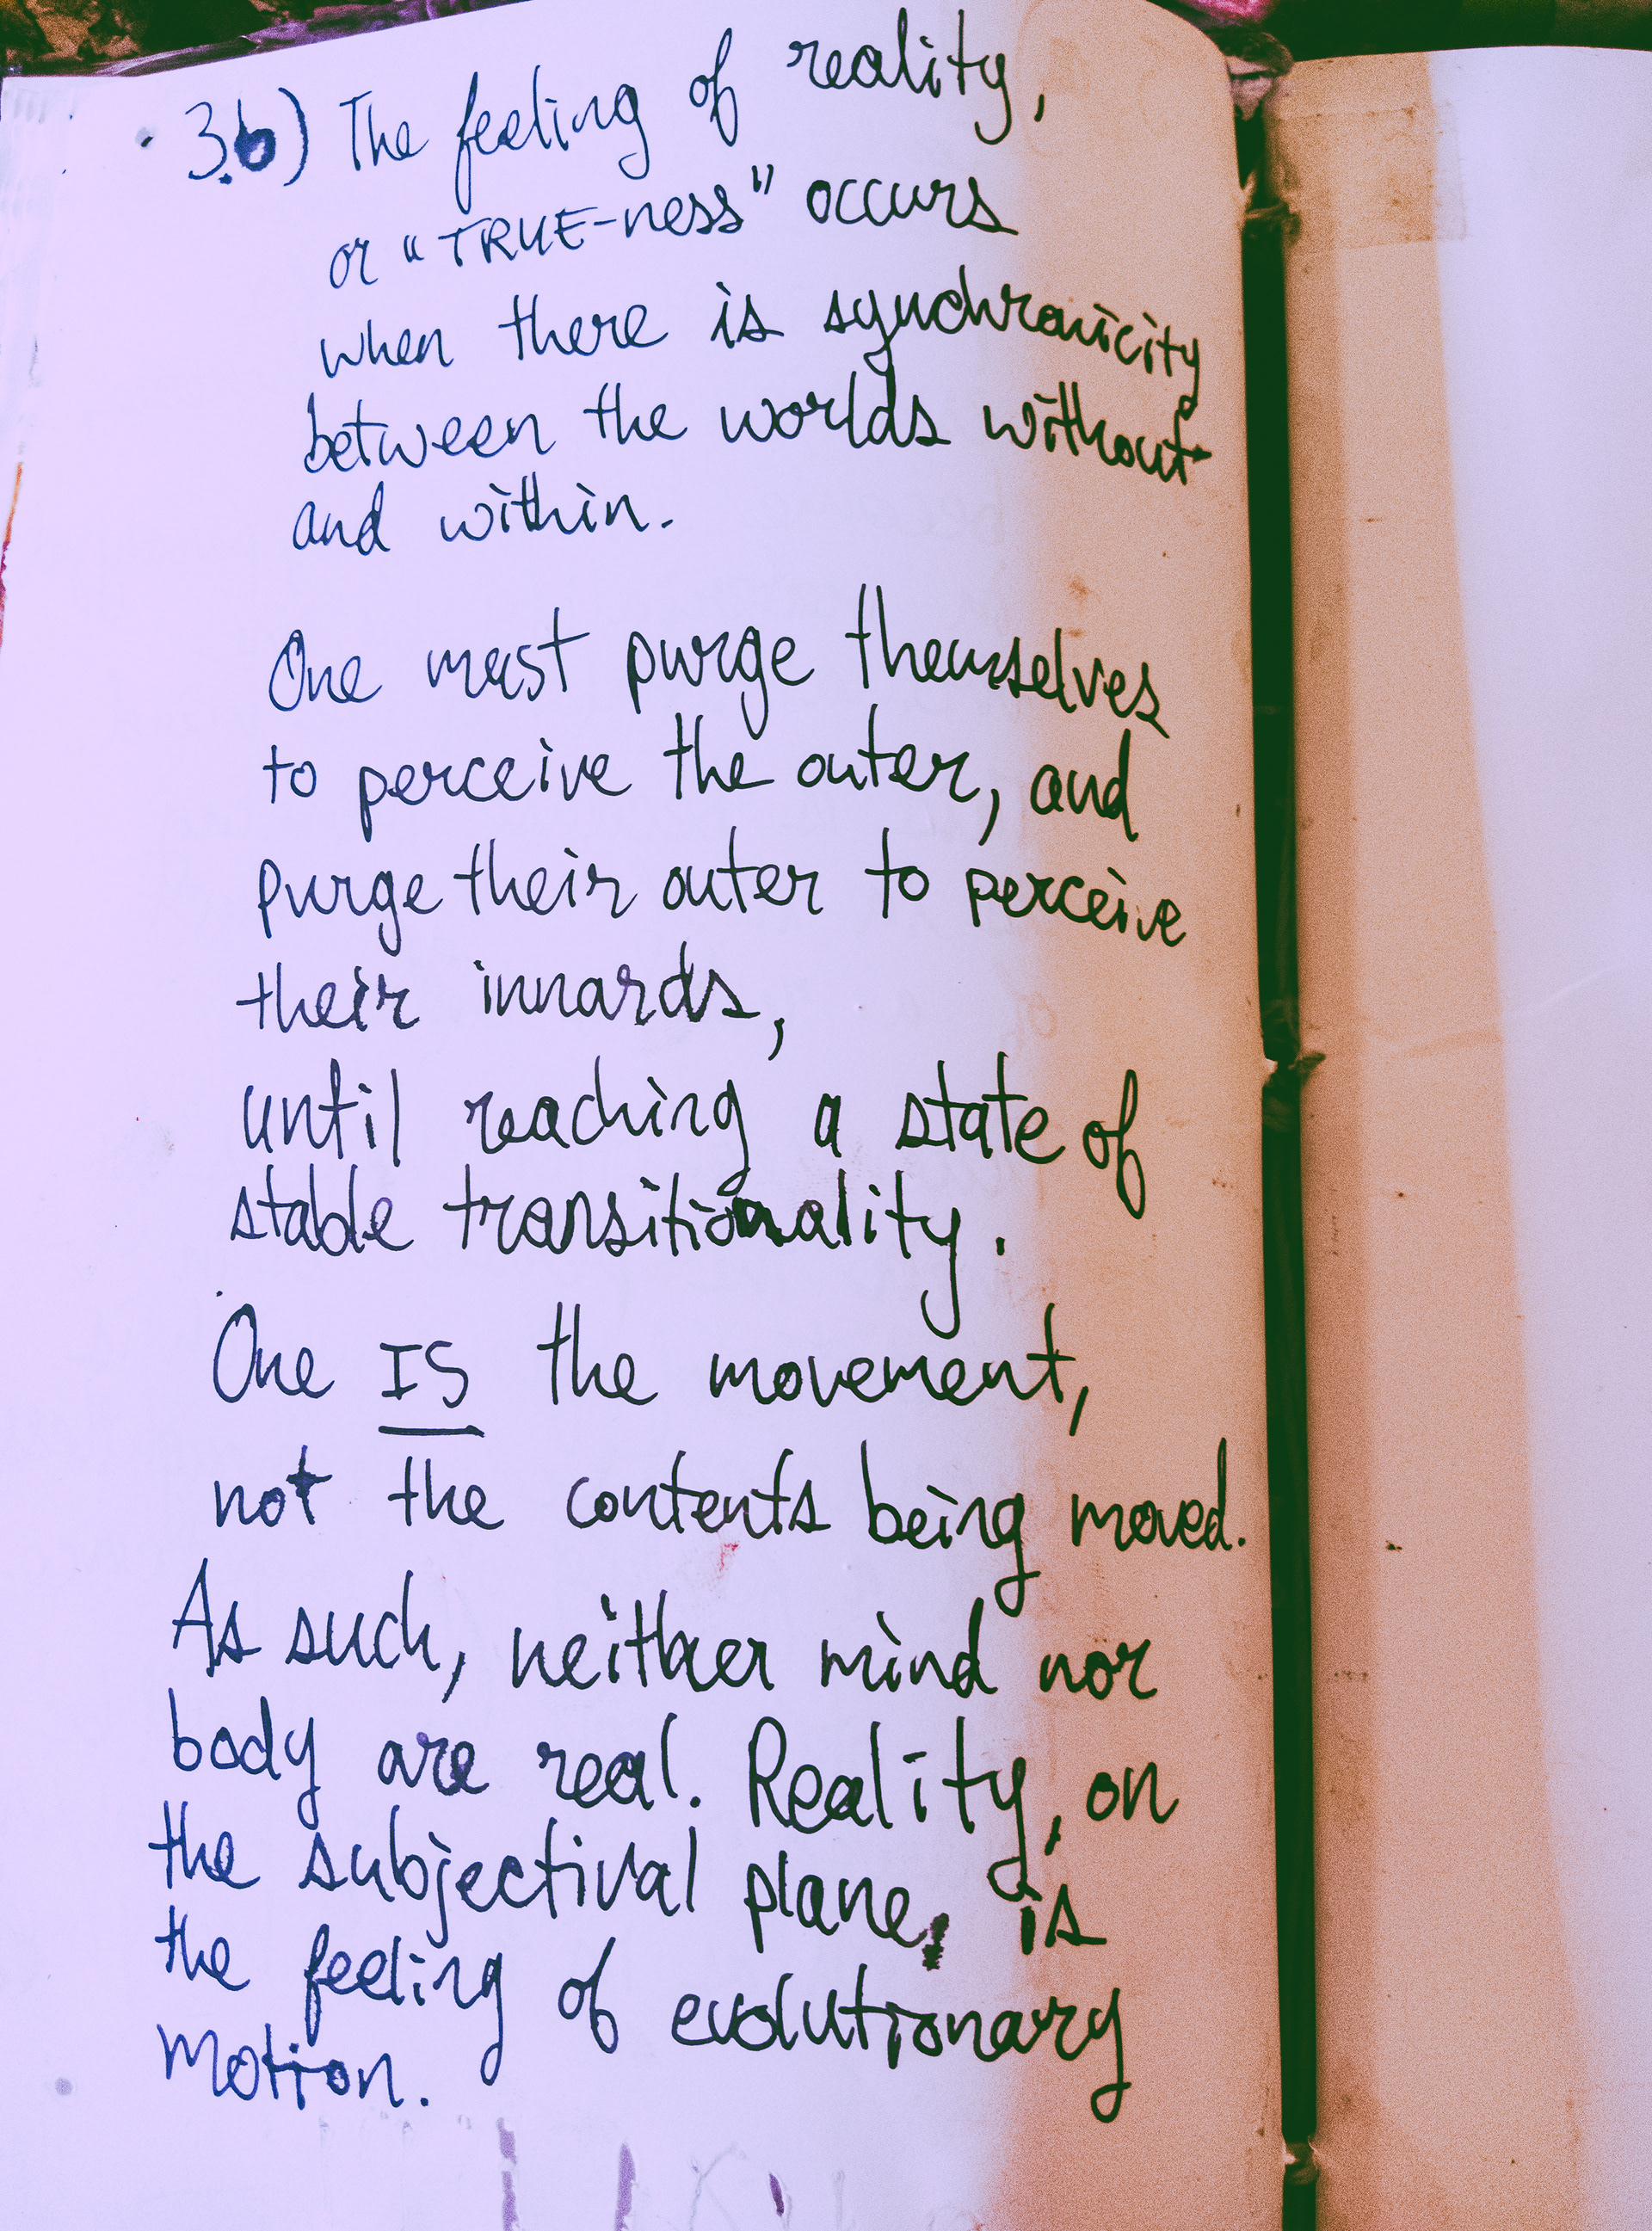 3.b) The feeling of reality,
or "TRUE-ness" occurs
when there is synchronicity
between the worlds without
and within.
One must purge themselves
to perceive the outer, and
purge their outer to perceive
their innards,
until reaching a state of
stable transitionality.
One IS the movement,
not the contents being moved.
As such, neither mind nor
body are real. Reality, on
the subjectival plane, is
the feeling of evolutionary
motion.